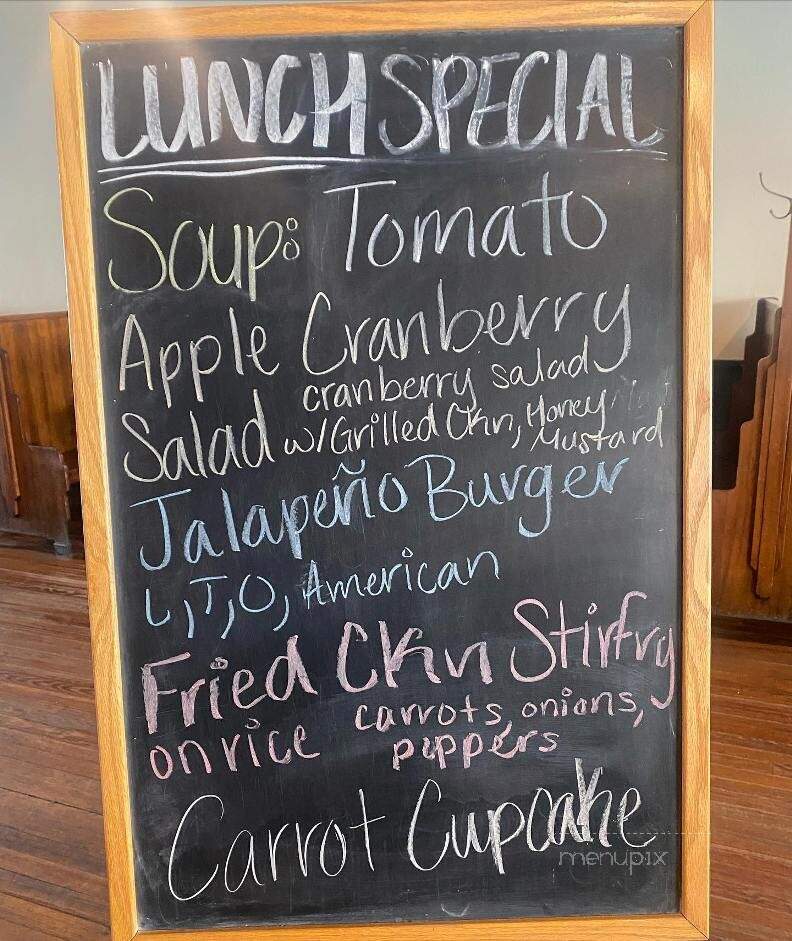 LUNCH SPECIAL
Soup: Tomato
Apple Cranberry
Salad cranberry salad
w/Grilled Ckn, Honey
Mustard
Jalapeño Burger
L,T,O, American
Fried Ckn Stirfry
on rice carrots, onions,
peppers
Carrot Cupcake
menupix